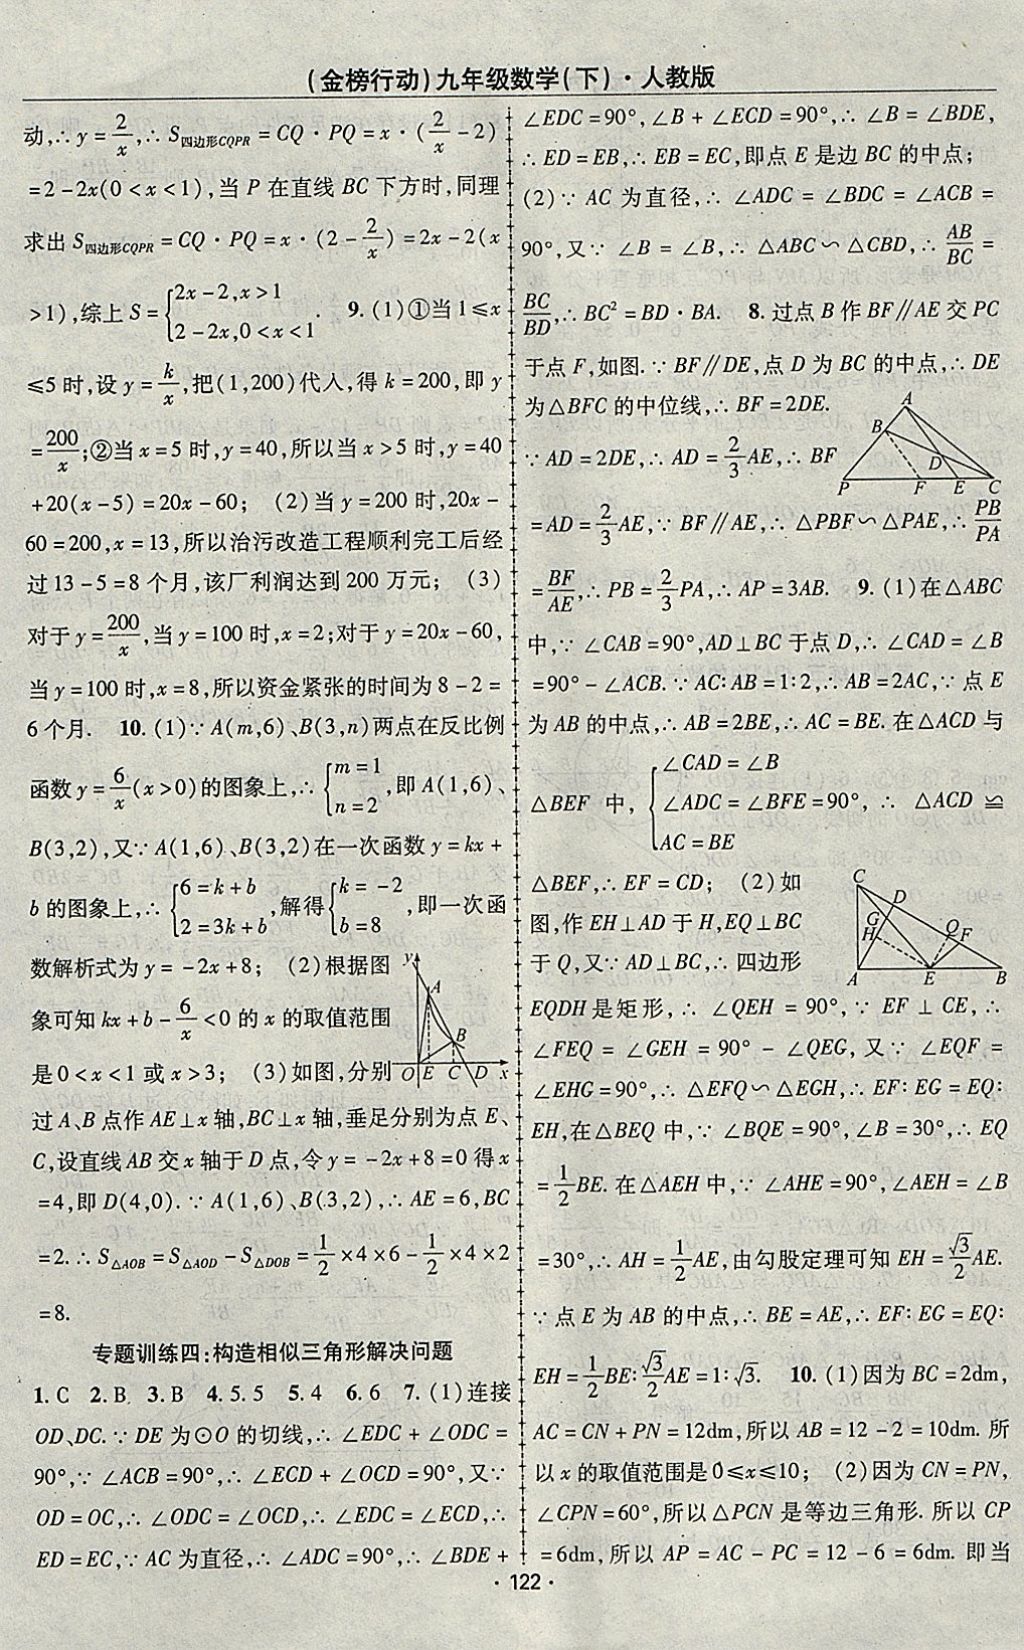 (金榜行动)九年级数学(下)·人教版
动,∴y=2/x,∴S四边形CQPR=CQ·PQ=x·(2/x-2)
=2-2x(0<x<1),当P在直线BC下方时,同理
求出S四边形CQPR=CQ·PQ=x·(2-2/x)=2x-2(x
>1),综上S={2x-2,x>1 2-2x,0<x<1. 9.(1)①当1≤x
≤5时,设y=k/x,把(1,200)代入,得k=200,即y
=200/x;②当x=5时,y=40,所以当x>5时,y=40
+20(x-5)=20x-60; (2)当y=200时,20x-
60=200,x=13,所以治污改造工程顺利完工后经
过13-5=8个月,该厂利润达到200万元; (3)
对于y=200/x,当y=100时,x=2;对于y=20x-60,
当y=100时,x=8,所以资金紧张的时间为8-2=
6个月. 10.(1)∵A(m,6)、B(3,n)两点在反比例
函数y=6/x(x>0)的图象上,∴{m=1 n=2,即A(1,6)、
B(3,2),又∵A(1,6)、B(3,2)在一次函数y=kx+
b的图象上,∴{6=k+b 2=3k+b,解得{k=-2 b=8,即一次函
数解析式为y=-2x+8; (2)根据图
象可知kx+b-6/x<0的x的取值范围
是0<x<1或x>3; (3)如图,分别
y A B O E C D x
过A、B点作AE⊥x轴,BC⊥x轴,垂足分别为点E、
C,设直线AB交x轴于D点,令y=-2x+8=0得x
=4,即D(4,0).∵A(1,6)、B(3,2),∴AE=6,BC
=2.∴S△AOB=S△AOD-S△DOB=1/2×4×6-1/2×4×2
=8.
专题训练四:构造相似三角形解决问题
1.C 2.B 3.B 4.5.5 5.4 6.6 7.(1)连接
OD、DC.∵DE为⊙O的切线,∴∠EDC+∠ODC=
90°,∵∠ACB=90°,∴∠ECD+∠OCD=90°,又∵
OD=OC,∴∠ODC=∠OCD,∴∠EDC=∠ECD,∴
ED=EC,∵AC为直径,∴∠ADC=90°,∴∠BDE+
∠EDC=90°,∠B+∠ECD=90°,∴∠B=∠BDE,
∴ED=EB,∴EB=EC,即点E是边BC的中点;
(2)∵AC为直径,∴∠ADC=∠BDC=∠ACB=
90°,又∵∠B=∠B,∴△ABC∽△CBD,∴AB/BC=
BC/BD,∴BC²=BD·BA. 8.过点B作BF∥AE交PC
于点F,如图.∵BF∥DE,点D为BC的中点,∴DE
为△BFC的中位线,∴BF=2DE.
∵AD=2DE,∴AD=2/3AE,∴BF
A B D P F E C
=AD=2/3AE,∵BF∥AE,∴△PBF∽△PAE,∴PB/PA
=BF/AE,∴PB=2/3PA,∴AP=3AB. 9.(1)在△ABC
中,∵∠CAB=90°,AD⊥BC于点D,∴∠CAD=∠B
=90°-∠ACB.∵AC∶AB=1∶2,∴AB=2AC,∵点E
为AB的中点,∴AB=2BE,∴AC=BE.在△ACD与
△BEF中,{∠CAD=∠B ∠ADC=∠BFE=90°, AC=BE ∴△ACD≌
△BEF,∴EF=CD; (2)如
图,作EH⊥AD于H,EQ⊥BC
于Q,又∵AD⊥BC,∴四边形
C D G H Q F A E B
EQDH是矩形,∴∠QEH=90°,∵EF⊥CE,∴
∠FEQ=∠GEH=90°-∠QEG,又∵∠EQF=
∠EHG=90°,∴△EFQ∽△EGH,∴EF∶EG=EQ∶
EH,在△BEQ中,∵∠BQE=90°,∠B=30°,∴EQ
=1/2BE.在△AEH中,∵∠AHE=90°,∠AEH=∠B
=30°,∴AH=1/2AE,由勾股定理可知EH=√3/2AE.
∵点E为AB的中点,∴BE=AE,∴EF∶EG=EQ∶
EH=1/2BE∶√3/2AE=1∶√3. 10.(1)因为BC=2dm,
AC=CN+PN=12dm,所以AB=12-2=10dm.所
以x的取值范围是0≤x≤10; (2)因为CN=PN,
∠CPN=60°,所以△PCN是等边三角形.所以CP
=6dm,所以AP=AC-PC=12-6=6dm.即当
·122·